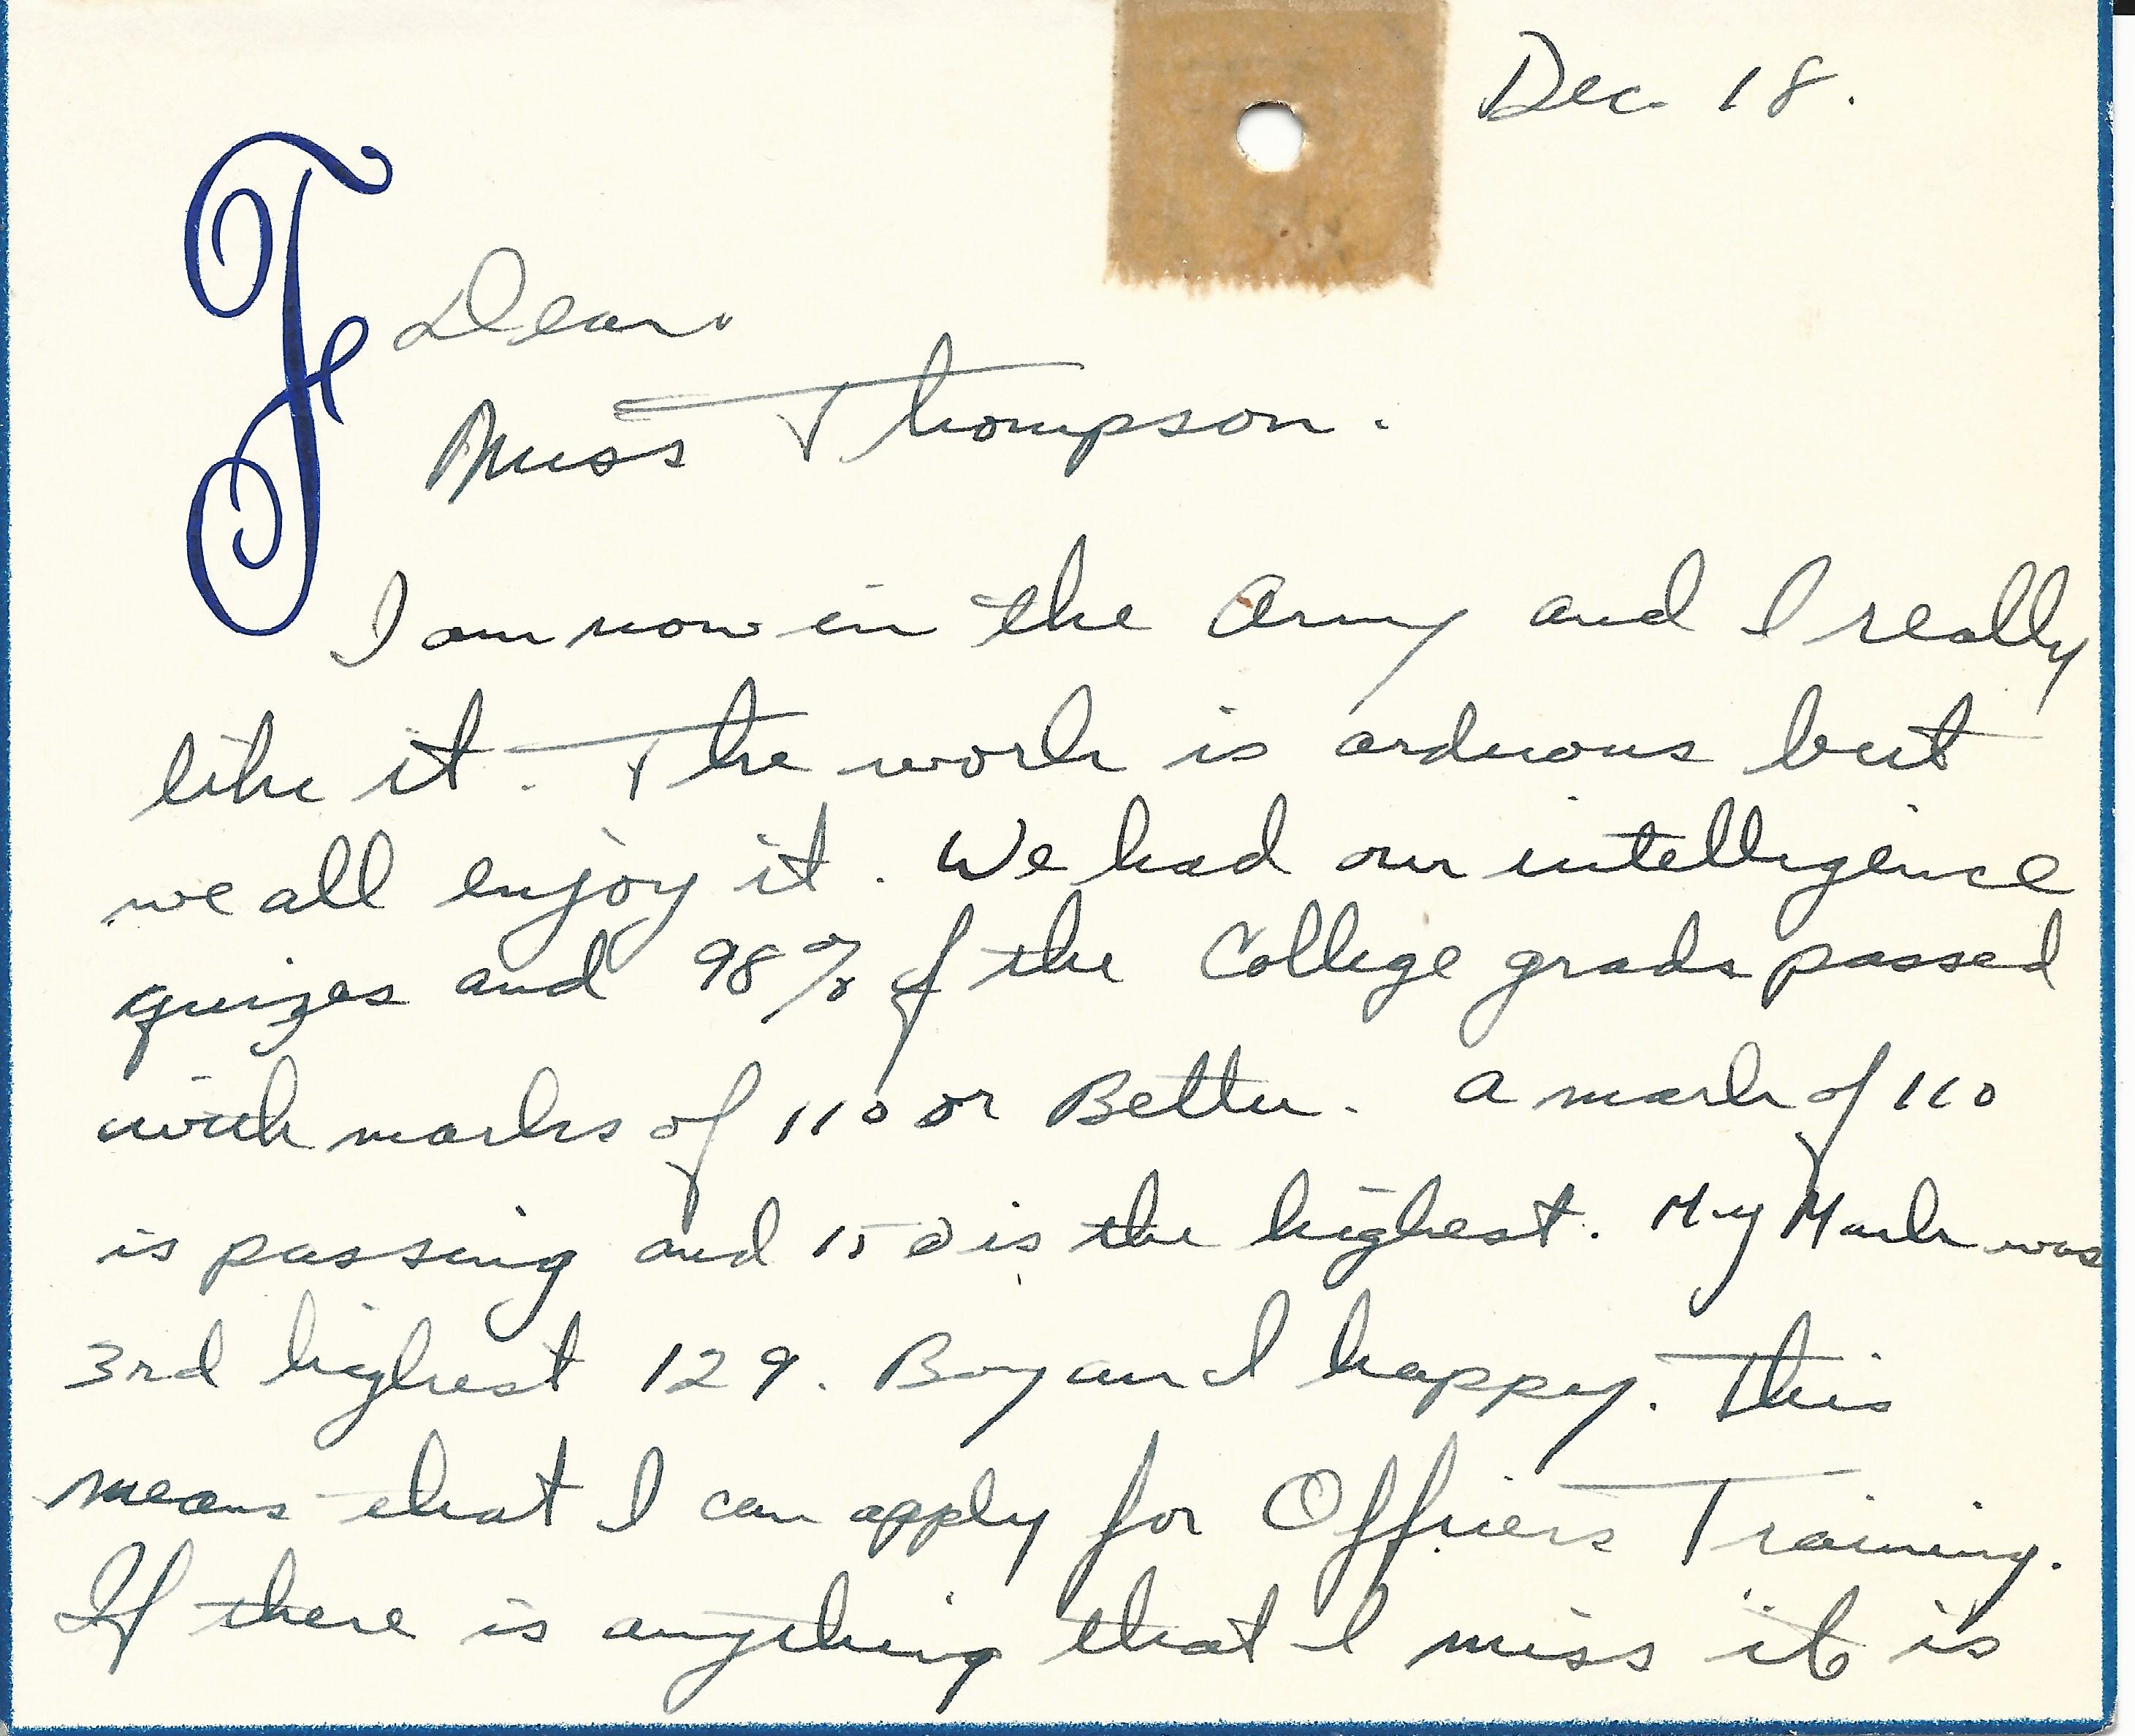 Dec 18.
F
Dear
Miss Thompson.
I am now in the Army and I really
like it. The work is arduous but
we all enjoy it. We had our intelligence
quizes and 98% of the College grads passed
with marks of 110 or Better. A mark of 110
is passing and 150 is the highest. My Mark was
3rd highest 129. Boy am I happy. This
means that I can apply for Officers Training.
If there is anything that I miss it is